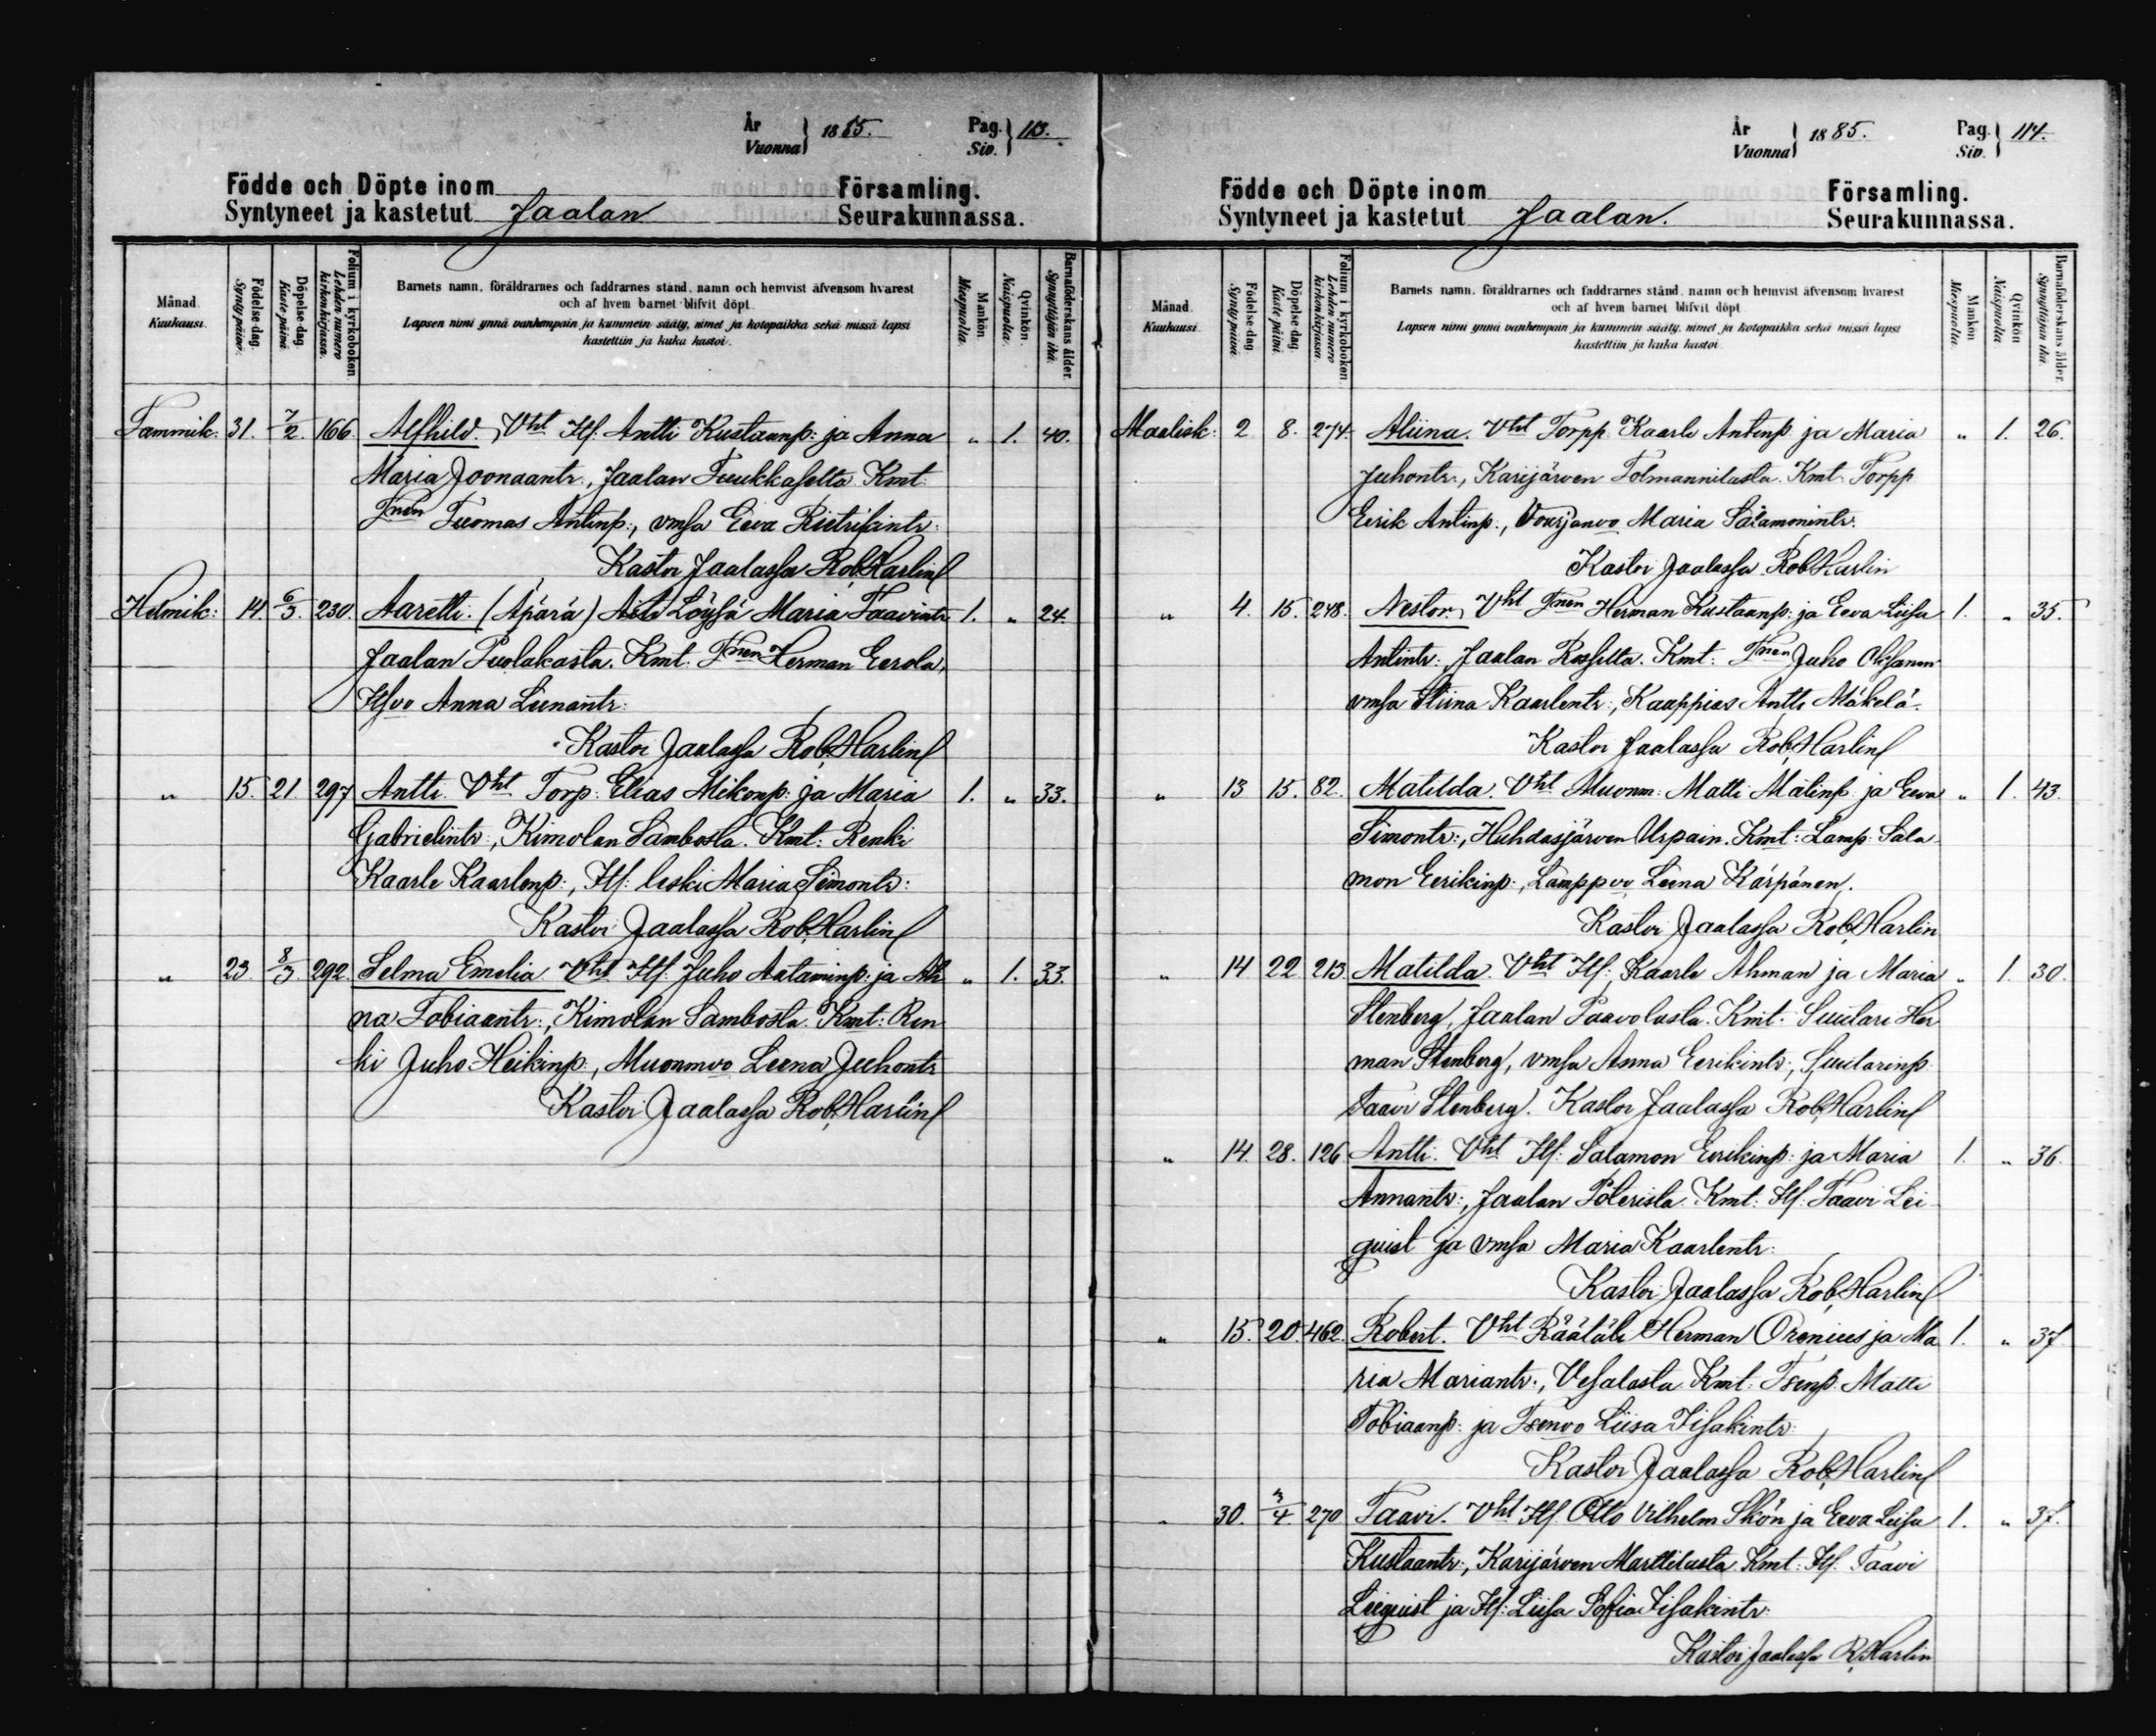 År
Vuonna } 1885. Pag. Siv. } 113.
Födde och Döpte inom Församling.
Syntyneet ja kastetut Jaalan Seurakunnassa.
Månad. Kuukausi.
Födelse dag. Synty päivä.
Döpelse dag. Kaste päivä.
Folium i kyrkoboken. Lehden numero kirkonkirjassa.
Barnets namn, föräldrarnes och faddrarnes stånd, namn och hemvist äfvensom hvarest
och af hvem barnet blifvit döpt.
Lapsen nimi ynnä vanhempain ja kummein sääty, nimet ja kotopaikka sekä missä lapsi
kastettiin ja kuka kastoi.
Mankön. Miespuolia.
Qvinkön. Naispuolia.
Barnaföderskans ålder. Synnyttäjän ikä.
Tammik: 31. 7/2. 166 Alfhild. Vht Itf: Antti Kustaanp: ja Anna „ 1. 40.
Maria Joonaantr., Jaalan Tuukkaselta Kmt:
Tnen Tuomas Antinp:, vmsa Eeva Kietrisintr:
Kastoi Jaalassa Rob. Harlin
Helmik: 14. 6/3. 230. Aaretti. (Äpärä) Äiti Löysä Maria Taavintr. 1. „ 24.
Jaalan Puolakasta. Kmt. Tnen Herman Eerola,
Itsvo Anna Leenantr:
Kastoi Jaalassa Rob. Harlin
„ 15. 21. 297 Antti. Vht Torp: Elias Mikonp: ja Maria 1. „ 33.
Gabrielintr:, Kimolan Sambosta. Kmt: Renki
Kaarle Kaarlenp:, Itf: leski Maria Simontr:
Kastoi Jaalassa Rob. Harlin
„ 23. 8/3. 292. Selma Emelia. Vht Itf Juho Aataminp: ja Ah „ 1. 33.
na Tobiaantr:, Kimolan Sambosta. Kmt: Ren
ki Juho Heikinp:, Muonmvo Leena Juhontr
Kastoi Jaalassa Rob. Harlin
År
Vuonna } 1885. Pag. Siv. } 114.
Födde och Döpte inom Församling.
Syntyneet ja kastetut Jaalan. Seurakunnassa.
Månad. Kuukausi.
Födelse dag. Synty päivä.
Döpelse dag. Kaste päivä.
Folium i kyrkoboken. Lehden numero kirkonkirjassa.
Barnets namn, föräldrarnes och faddrarnes stånd, namn och hemvist äfvensom hvarest
och af hvem barnet blifvit döpt.
Lapsen nimi ynnä vanhempain ja kummein sääty, nimet ja kotopaikka sekä missä lapsi
kastettiin ja kuka kastoi.
Mankön. Miespuolia.
Qvinkön. Naispuolia.
Barnaföderskans ålder. Synnyttäjän ikä.
Maalisk: 2 8. 274. Aliina. Vht Torpp. Kaarle Antinp: ja Maria „ 1. 26.
Juhontr:, Karijärven Tolmannilasta. Kmt. Torpp.
Eerik Antinp:, Maria Salamonintr:
Kastoi Jaalassa Rob Harlin
„ 4. 15. 248. Nestor. Vht Tnen Herman Kustaanp: ja Eeva Liisa 1. „ 35.
Antintr: Jaalan Rossilta. Kmt: Tnen Juho Oksanen
vmsa Stiina Kaarlentr:, Kauppias Antti Mäkelä.
Kastoi Jaalassa Rob. Harlin
„ 13 15. 82. Matilda. Vht Muonm: Matti Matinp: ja Eeva „ 1. 43.
Simontr:, Huhdasjärven Urpain. Kmt: Lamp: Sala
mon Eerikinp:, Lamppvo Leena Kärpänen.
Kastoi Jaalassa Rob. Harlin
„ 14. 22 213. Matilda. Vht Itf: Kaarle Ahman ja Maria „ 1. 30.
Stenberg, Jaalan Paavolasta. Kmt. Suutari Her
man Stenberg, vmsa Anna Eerikintr:, Suutarinp.
Taavi Stenberg. Kastoi Jaalassa Rob. Harlin
„ 14. 28. 126 Antti. Vht Itf: Salamon Eerikinp: ja Maria 1. „ 36.
Annantr:, Jaalan Pölerista. Kmt: Itf. Taavi Lei
quist ja vmsa Maria Kaarlentr:
Kastoi Jaalassa Rob. Harlin
„ 15. 20. 462. Robert. Vht Räätäli Herman Orenius ja Ma 1. „ 37
ria Mariantr:, Vesalasta. Kmt: Tsenp. Matti
Tobiaanp: ja Tsenvo Liisa Iisakintr:
Kastoi Jaalassa Rob. Harlin
„ 30. 3/4. 270 Taavi. Vht Itf. Otto Vilhelm Skön ja Eeva Liisa 1. „ 37.
Kustaantr:, Karijärven Marttilasta. Kmt: Itf. Taavi
Leiquist ja Itf: Liisa Sofia Iisakintr:
Kastoi Jaalassa R. Harlin